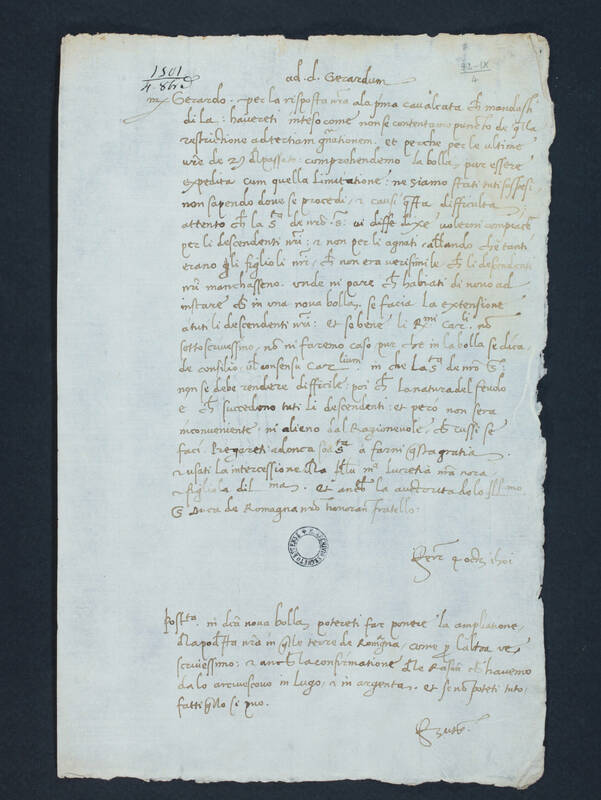 1501
4. 8bre
92-IX
4
ad. d. Gerardum
Gerardo. per la risposta nra ala pma cavalcata ch mandasti
di la: havereti inteso come non se contentavamo puncto de qlla
restrictione ad tertiam gnationem. et perche per le ultime
vre de 29 dl passato: comprehendemo la bolla pur essere
expedita cum quella limitatione: ne siamo stati tuti sospesi
non sapendo dove se procedi, causi qsta difficulta
attento ch la Sta de nro S: vi disse volerni compiacer
per li descendenti nri: et non per li agnati, che tanti
erano li figlioli nri, ch non era verisimile, ch li descendenti
nri manchasseno. unde ni pare ch habiati di novo ad
instare ch in una nova bolla, se facia la extensione
a tuti li descendenti nri: et se bene li Rmi Carli. no
sottoscrivessino, no ni faremo caso pur che in la bolla se dica,
de consilio, vl consensu Carlium. in che la Sta de nro S:
non se debe rendere difficile: poi ch la natura del feudo
e ch succedeno tuti li descendenti: et però non sera
inconveniente, ni alieno dal Ragionevole, ch cussi se
faci. Pregareti adonca sua Sta à farni qsta gratia
et usati la intercessione dla Illu. ma Lucretia nra nora,
et figliola dil. ma. Et anch la auctorita de lo Illmo.
S Duca de Romagna nro honoran fratello:
Ferr 4 octb 1501
Posta. in dta nova bolla potereti far ponere la ampliatione,
dla podsta nra in qlle terre de Romagna, come p laltra ve
scrivessimo: et anch la confirmatione dle che havemo
da lo arcivescovo in Lugo, et in argenta. et se no poteti tuto,
fatti qllo si puo.